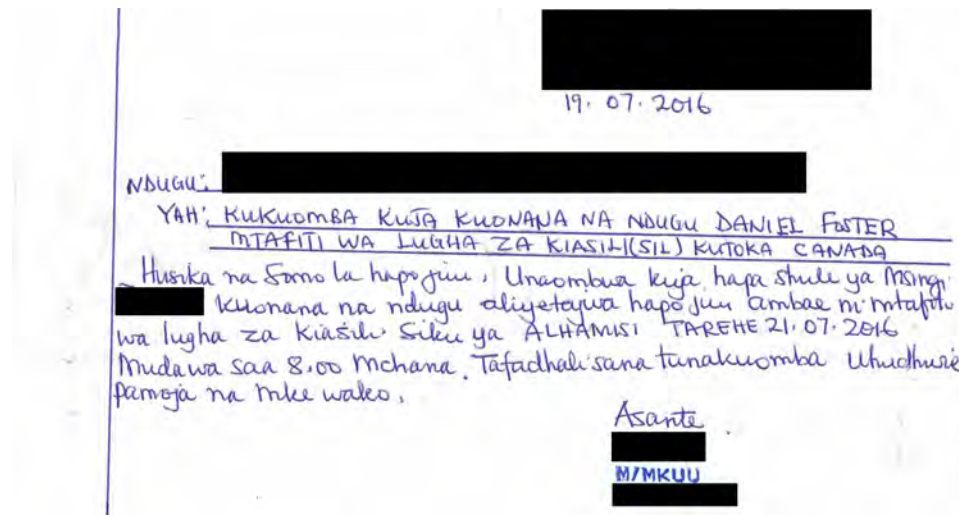 19. 07. 2016
NDUGU:
YAH: KUKUOMBA KUJA KUONANA NA NDUGU DANIEL FOSTER
MTAFITI WA LUGHA ZA KIASILI (SIL) KUTOKA CANADA
Husika na Somo la hapo juu, Unaombwa kuja hapa shule ya Msingi
kuonana na ndugu aliyetajwa hapo juu ambae ni mtafiti
wa lugha za Kiasili. Siku ya ALHAMISI TAREHE 21.07.2016
Muda wa saa 8.00 Mchana. Tafadhali sana tunakuomba Uhudhurie
pamoja na mke wako.
Asante
M/MKUU